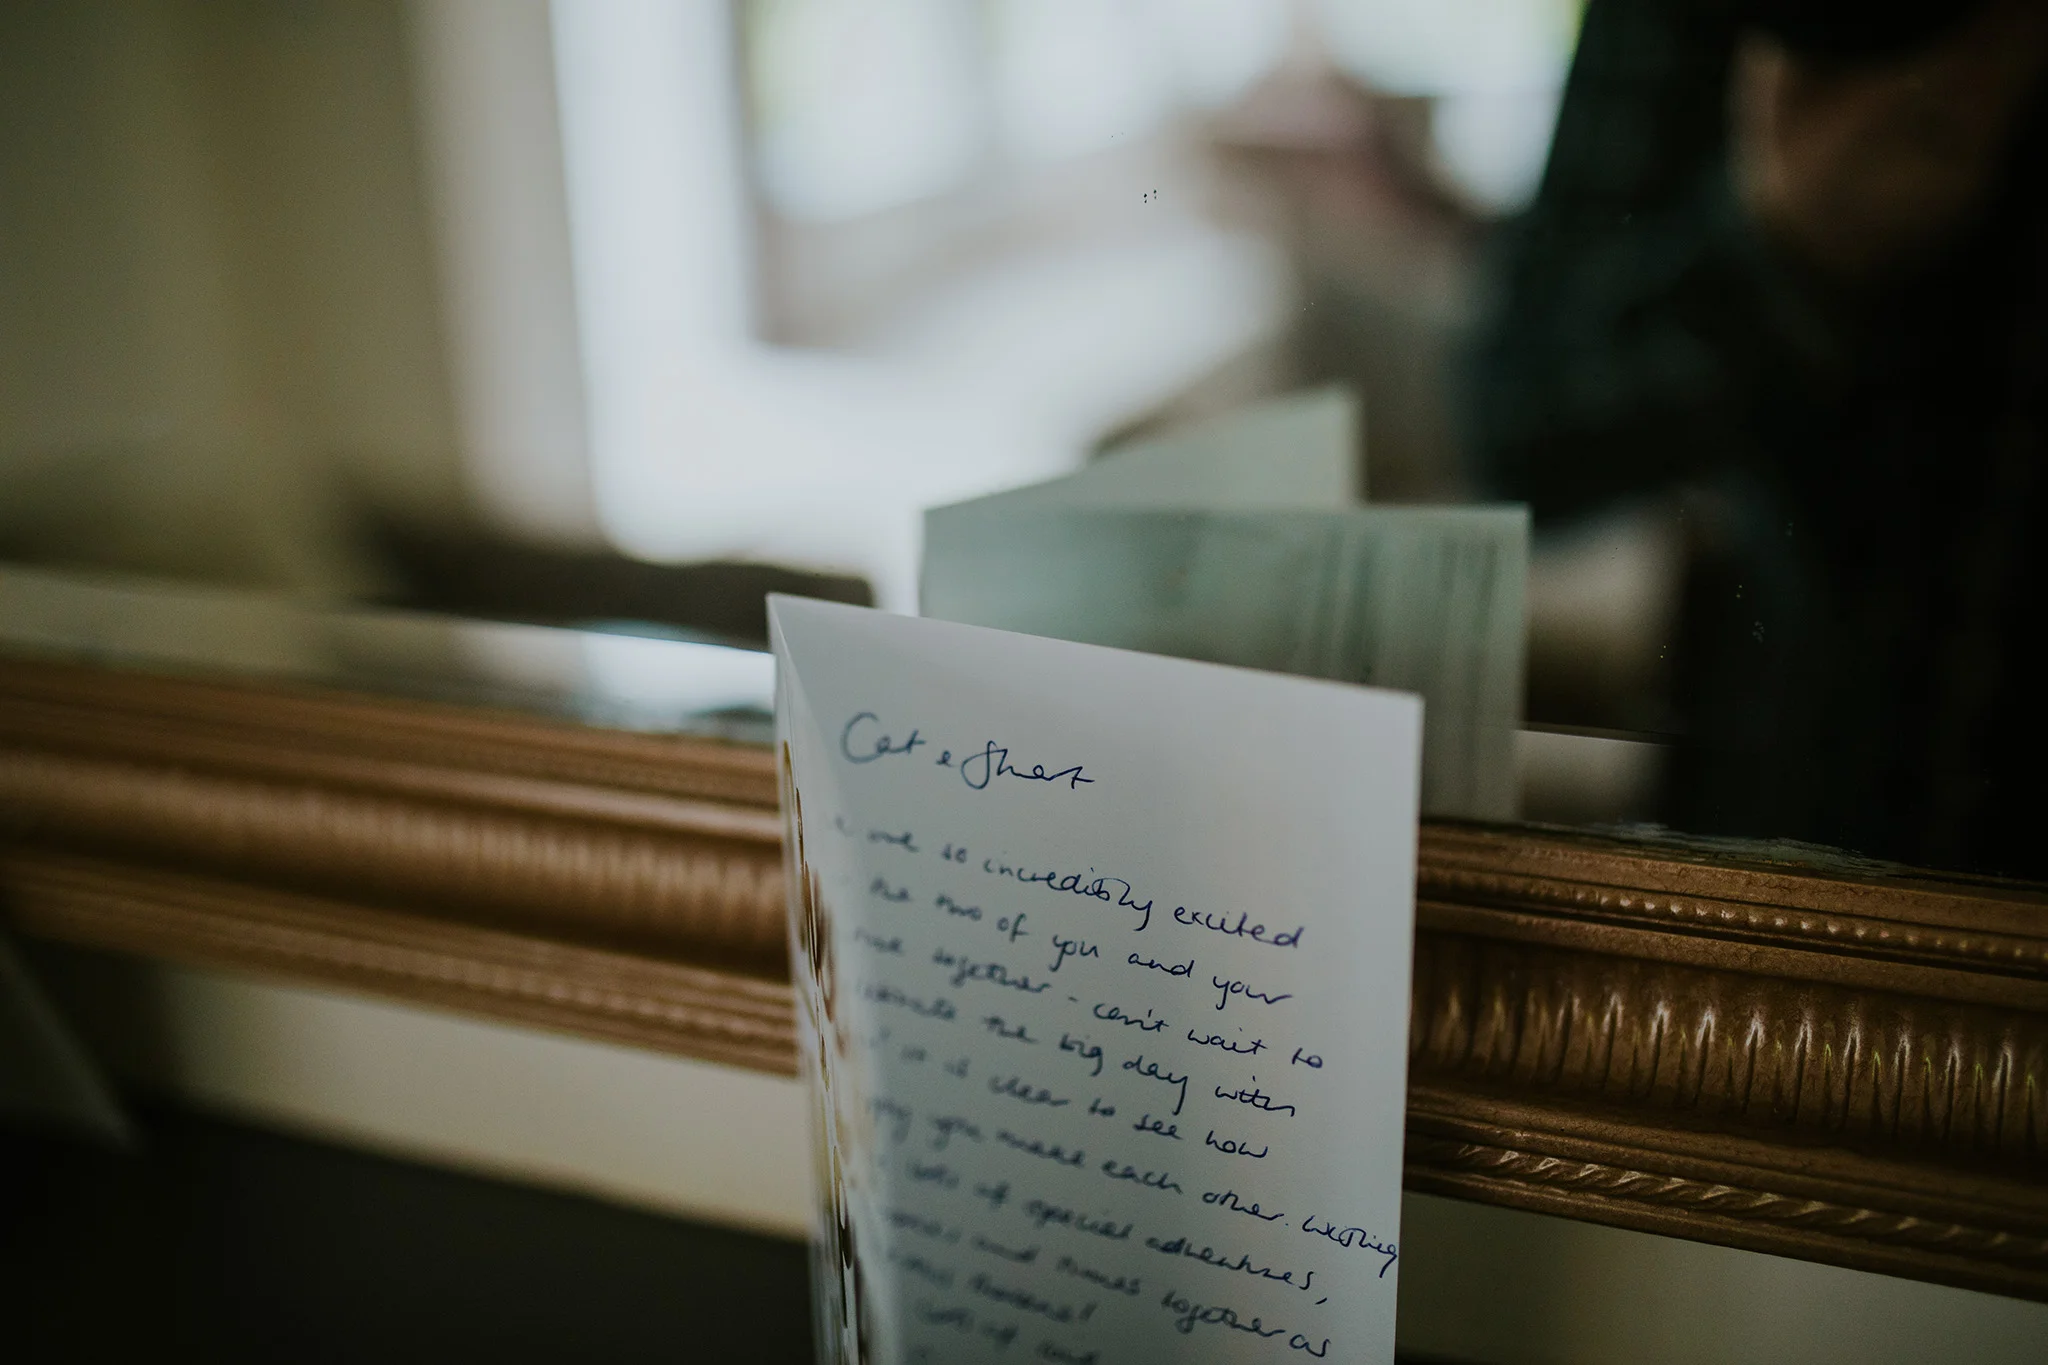 Cat & Stuart
are so incredibly excited
the two of you and your
together - can't wait to
celebrate the big day with
it is clear to see how
happy you make each other. Wishing
lots of special adventures,
and times together as
lots of love